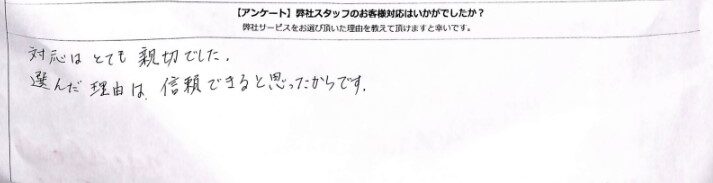 【アンケート】弊社スタッフのお客様対応はいかがでしたか？
弊社サービスをお選び頂いた理由を教えて頂けますと幸いです。
対応はとても親切でした。
選んだ理由は、信頼できると思ったからです。